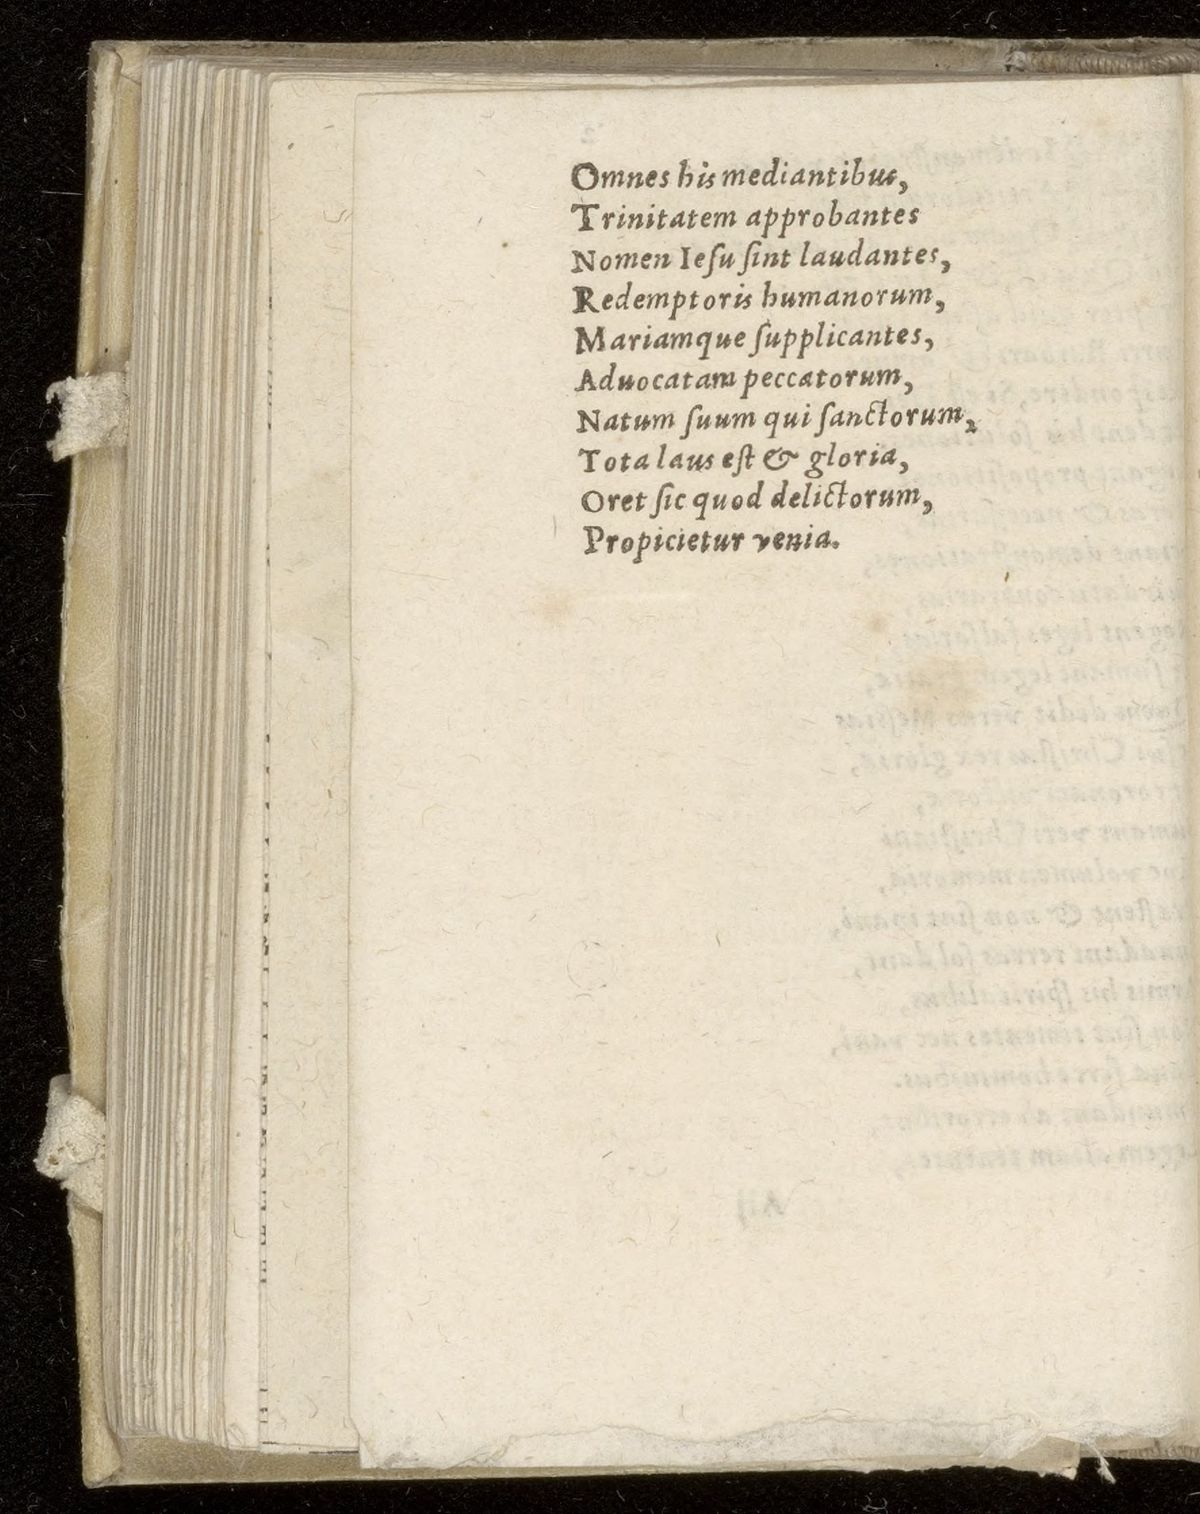 Omnes his mediantibus,
Trinitatem approbantes
Nomen Ieſu ſint laudantes,
Redemptoris humanorum,
Mariamque ſupplicantes,
Aduocatam peccatorum,
Natum ſuum qui ſanctorum,
Tota laus eſt & gloria,
Oret ſic quod delictorum,
Propicietur venia.